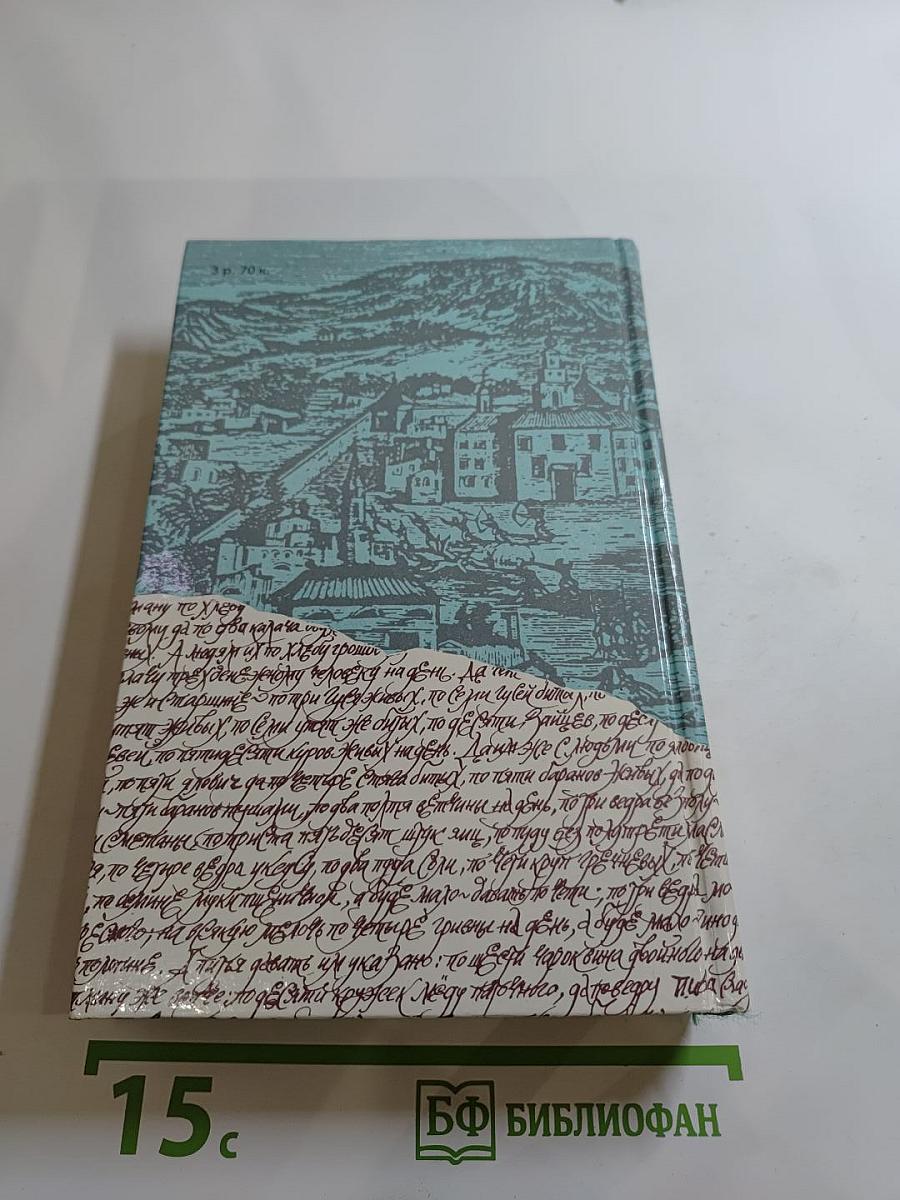 3 р. 70 к.
по хлебу
да по два калача
А людям их по хлебу
человеку на день. Да
по три гуся живых, по семи гусей битых, по
живых, по семи утят же битых, по десяти зайцев, по
по пятидесяти куров живых на день. людьми по
по пяти яловиц да по четыре стяга битых, по пяти баранов живых, да по
пяти баранов по два полтя ветчины на день, по три ведра
сметаны, по триста пятьдесят штук яиц, по пуду без
по четыре ведра уксусу, по два пуда соли, по чети круп гречневых,
муки пшеничной, а буде мало давать по чети; по три ведра
на всякую мелочь по четыре гривны на день, а буде мало
А питья давать им указано: по шести чарок вина двойного на
же по десяти кружек мёду паточного, да по ведру пива
15 с
БФ БИБЛИОФАН